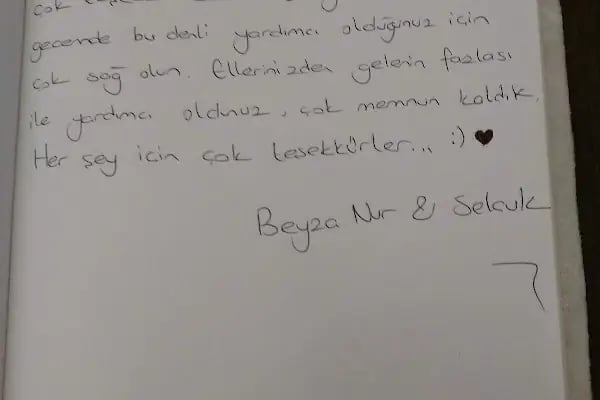 çok
gecende bu denli yardımcı olduğunuz için
çok sağ olun. Ellerinizden gelenin fazlası
ile yardımcı oldunuz, çok memnun kaldık.
Her şey için çok teşekkürler... :) ♥
Beyza Nur & Selçuk